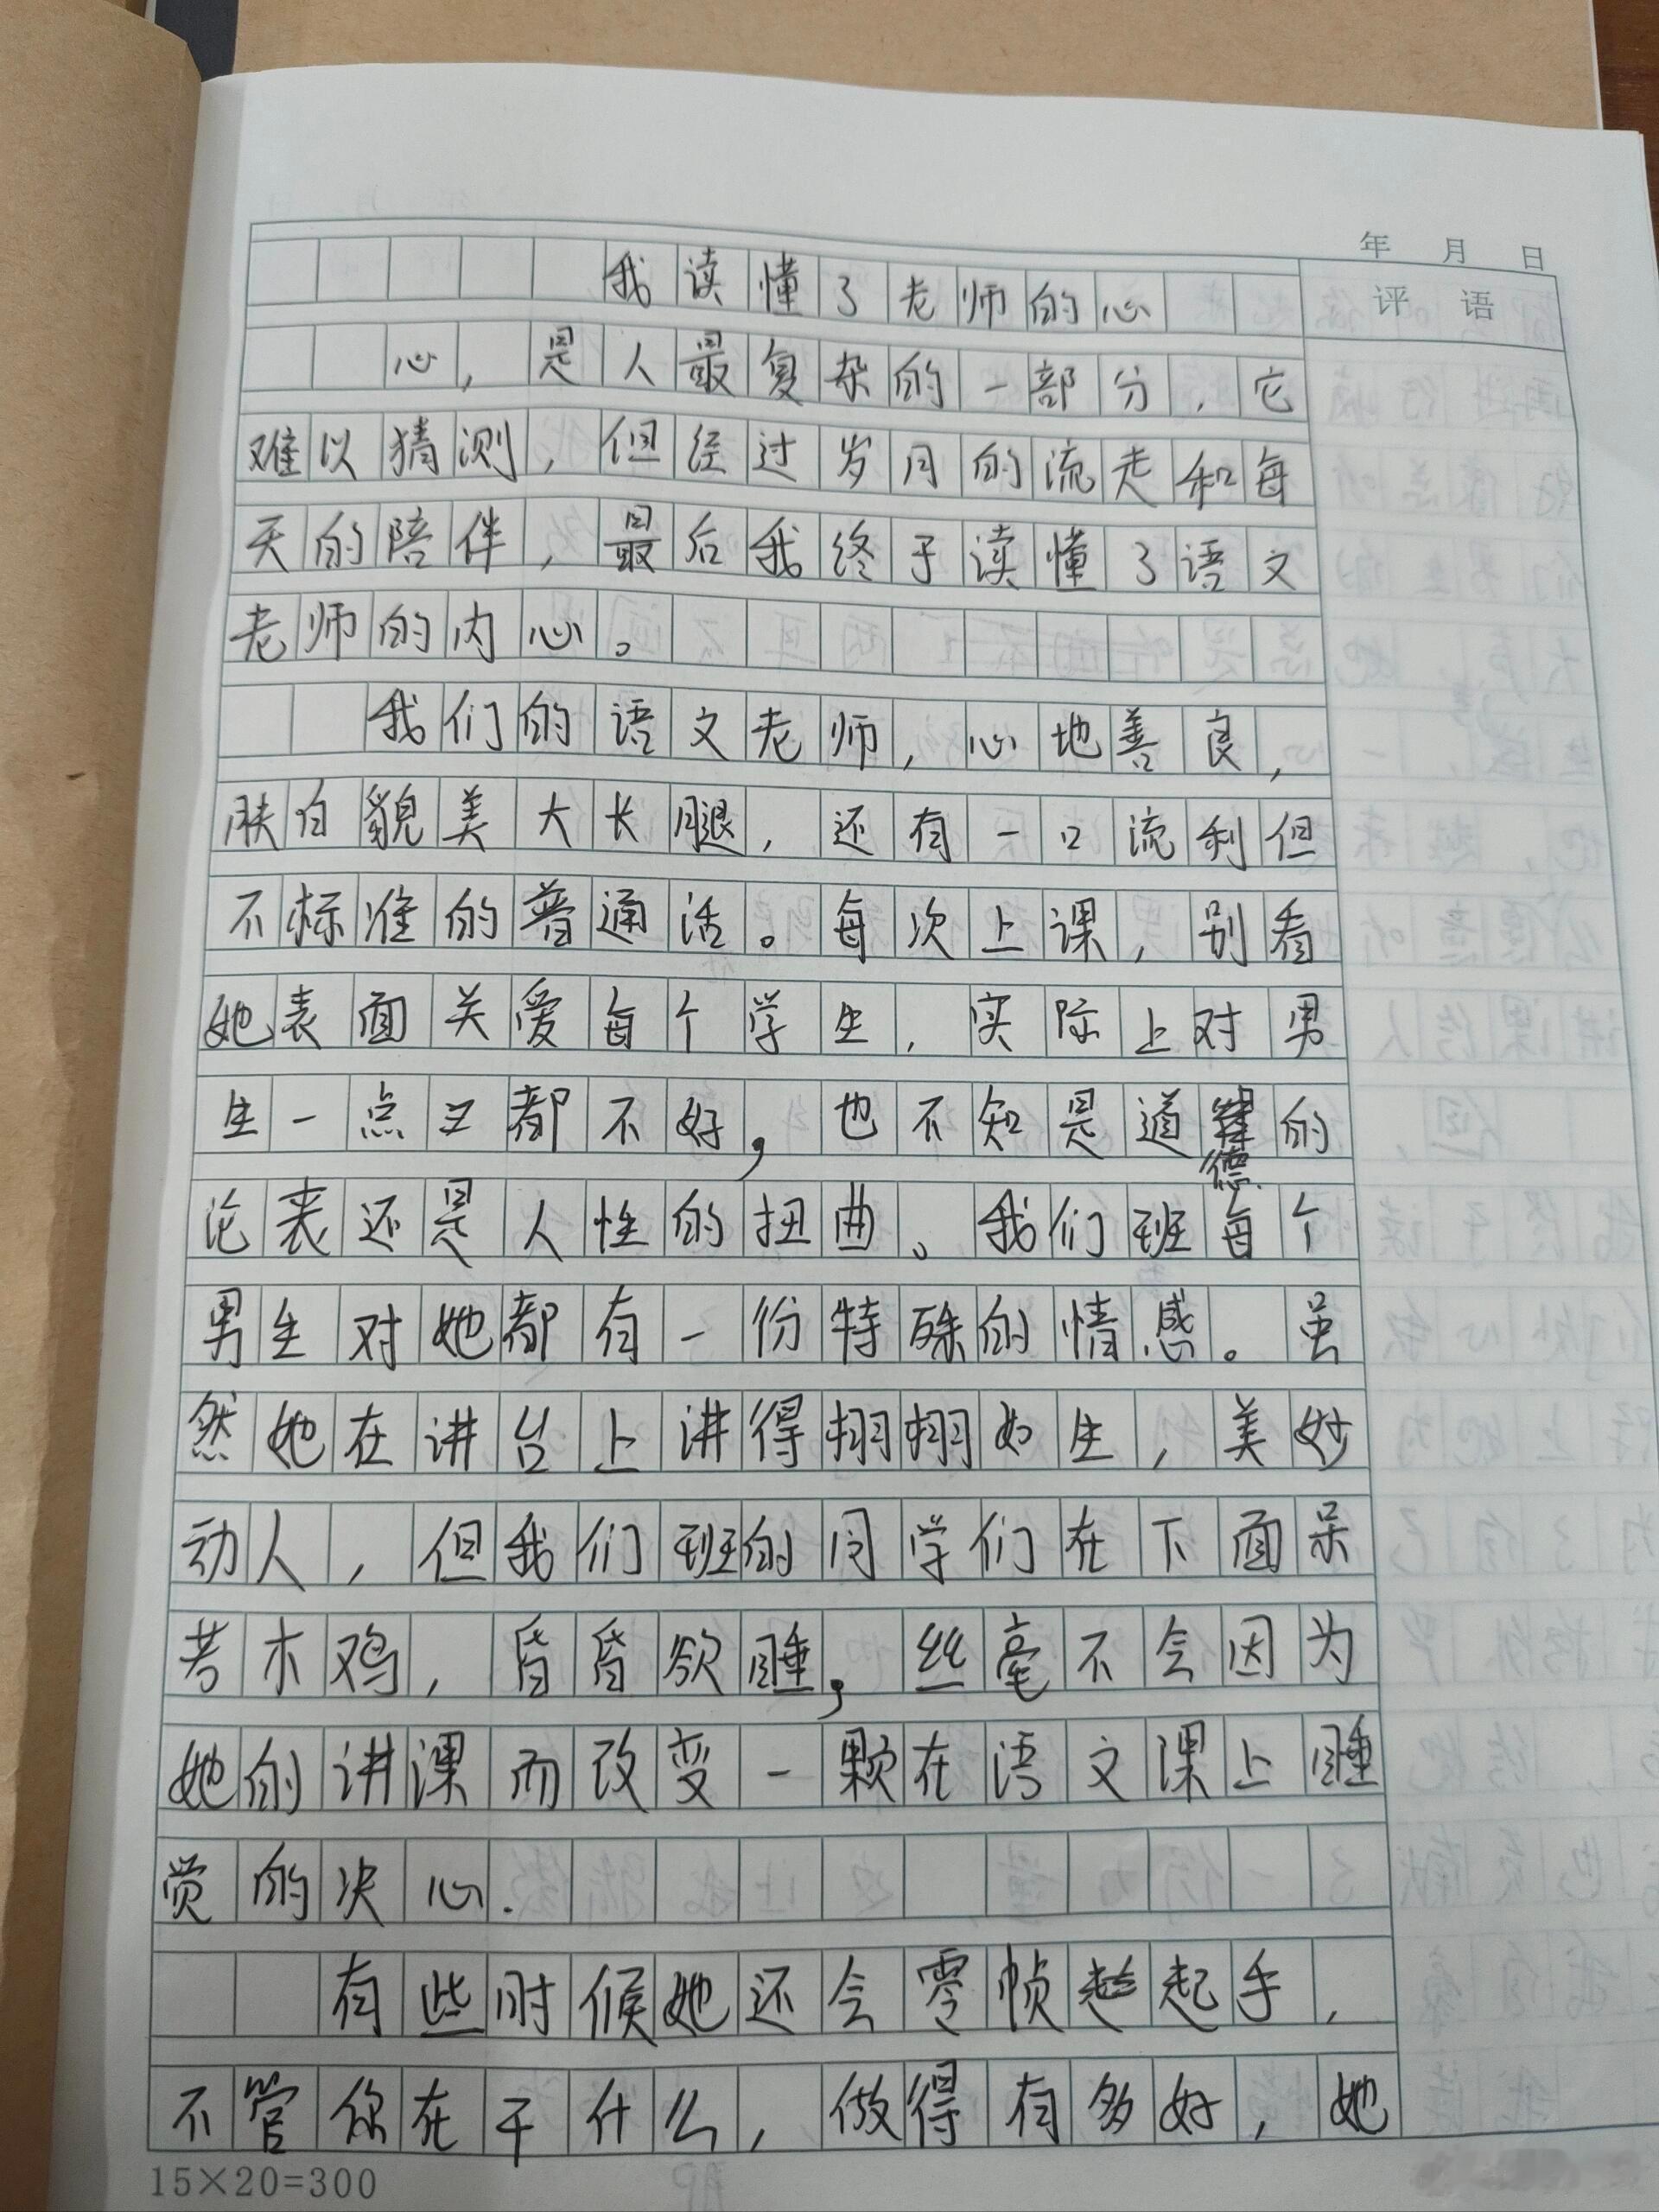 年 月 日
评 语
我读懂了老师的心
心，是人最复杂的一部分，它
难以猜测，但经过岁月的流走和每
天的陪伴，最后我终于读懂了语文
老师的内心。
我们的语文老师，心地善良，
肤白貌美大长腿，还有一口流利但
不标准的普通话。每次上课，别看
她表面关爱每个学生，实际上对男
生一点又都不好，也不知是道德的
沦丧还是人性的扭曲。我们班每个
男生对她都有一份特殊的情感。虽
然她在讲台上讲得栩栩如生，美妙
动人，但我们班的同学们在下面呆
若木鸡，昏昏欲睡，丝毫不会因为
她的讲课而改变一颗在语文课上睡
觉的决心.
有些时候她还会零帧起手，
不管你在干什么，做得有多好，她
15×20=300